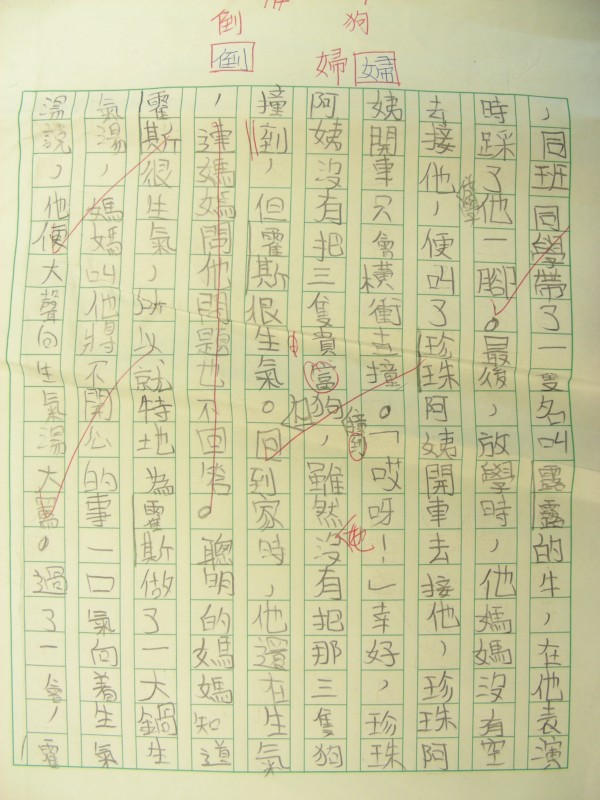 倒 狗
倒 婦 婦
，同班同學帶了一隻名叫露露的牛，在他表演
時踩了他一腳。最後，放學時，他媽媽沒有空
去接他，便叫了珍珠阿姨開車去接他，珍珠阿
姨開車只會橫衝去撞。「哎呀！」幸好，珍珠
阿姨沒有把三隻貴當狗撞到，雖然沒有把那三隻狗
撞到，但霍斯很生氣。回到家時，他還在生氣
，連媽媽問他問題也不回答。聰明的媽媽知道
霍斯很生氣，所以就特地為霍斯做了一大鍋生
氣湯，媽媽叫他將不開心的事一口氣向着生氣
湯說，他便大聲向生氣湯大罵。過了一會，霍
她